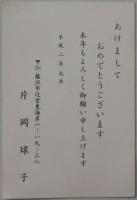 あけまして
おめでとうございます
本年もよろしく御願い申し上げます
平成二年元旦
藤沢市辻堂東海岸一-一九-三八
片岡球子